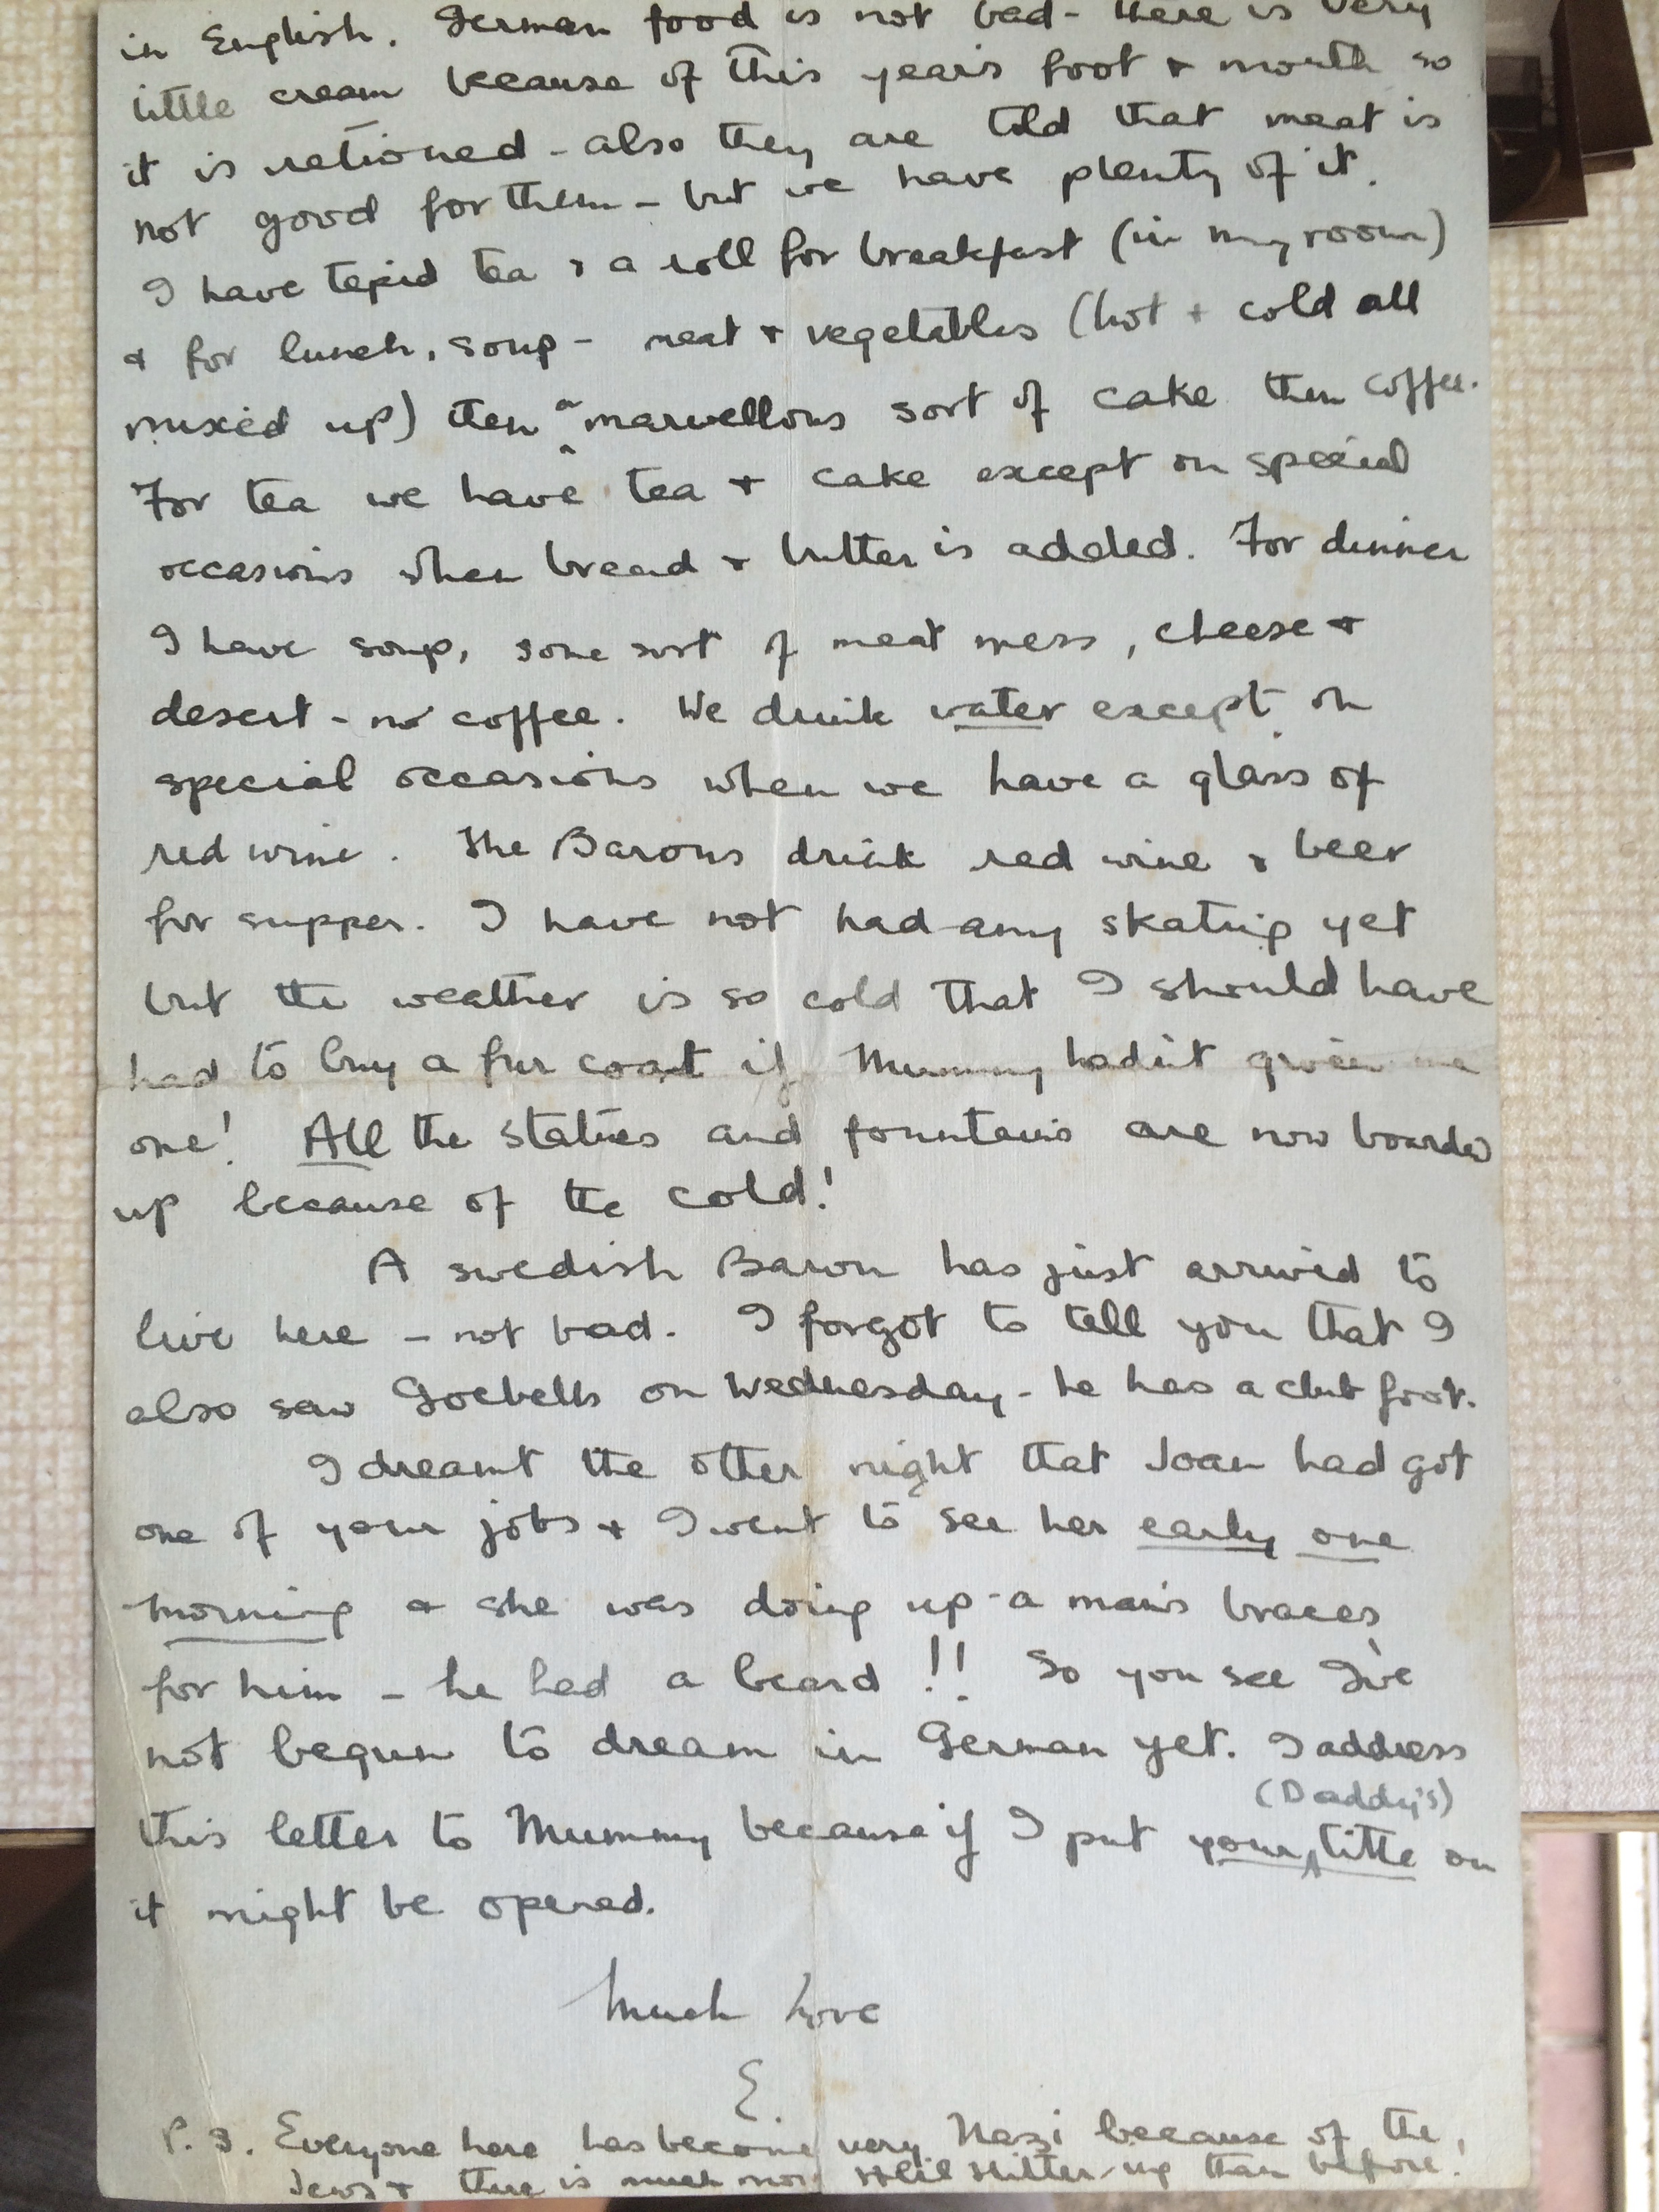 in English. German food is not bad - there is very
little cream because of this years foot + mouth so
it is rationed - also they are told that meat is
not good for them - but we have plenty of it.
I have tepid tea + a roll for breakfast (in my room)
+ for lunch, soup - meat + vegetables (hot + cold all
mixed up) then a marvellous sort of cake then coffee.
For tea we have tea + cake except on special
occasions when bread + butter is added. For dinner
I have soup, some sort of meat mess, cheese +
desert - no coffee. We drink water except on
special occasions when we have a glass of
red wine. The Barons drink red wine + beer
for supper. I have not had any skating yet
but the weather is so cold that I should have
had to buy a fur coat if Mummy hadn't given me
one! All the statues and fountains are now boarded
up because of the cold!
A swedish Baron has just arrived to
live here - not bad. I forgot to tell you that I
also saw Goebells on Wednesday - he has a club foot.
I dreamt the other night that Joan had got
one of your jobs + I went to see her early one
morning + she was doing up a man's braces
for him - he had a beard!! So you see I've
not begun to dream in German yet. I address
this letter to Mummy because if I put your (Daddy's) title on
it might be opened.
Much Love
E.
P.S. Everyone here has become very Nazi because of the
Jews + there is much more Heil Hitler-ing than before!